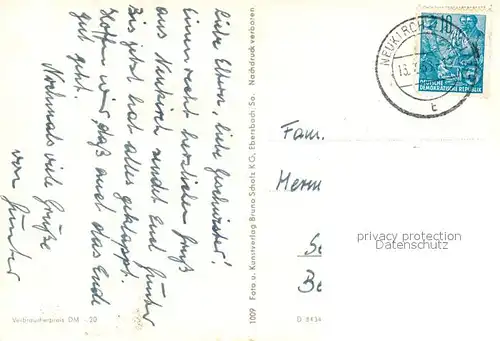 Liebe Eltern, liebe Geschwister!
Einen recht herzlichen Gruß
aus Neukirch sendet Euch Günter
Bis jetzt hat alles geklappt.
Hoffen wir, daß auch das Ende
gut geht.
Nochmals viele Grüße
von Günter
Verbraucherpreis DM -.20
1009 Foto u. Kunstverlag Bruno Scholz KG, Ebersbach/Sa. Nachdruck verboten
NEUKIRCH
t
10
DEUTSCHE
DEMOKRATISCHE REPUBLIK
Fam.
Herm
Be
D 8434
privacy protection
Datenschutz